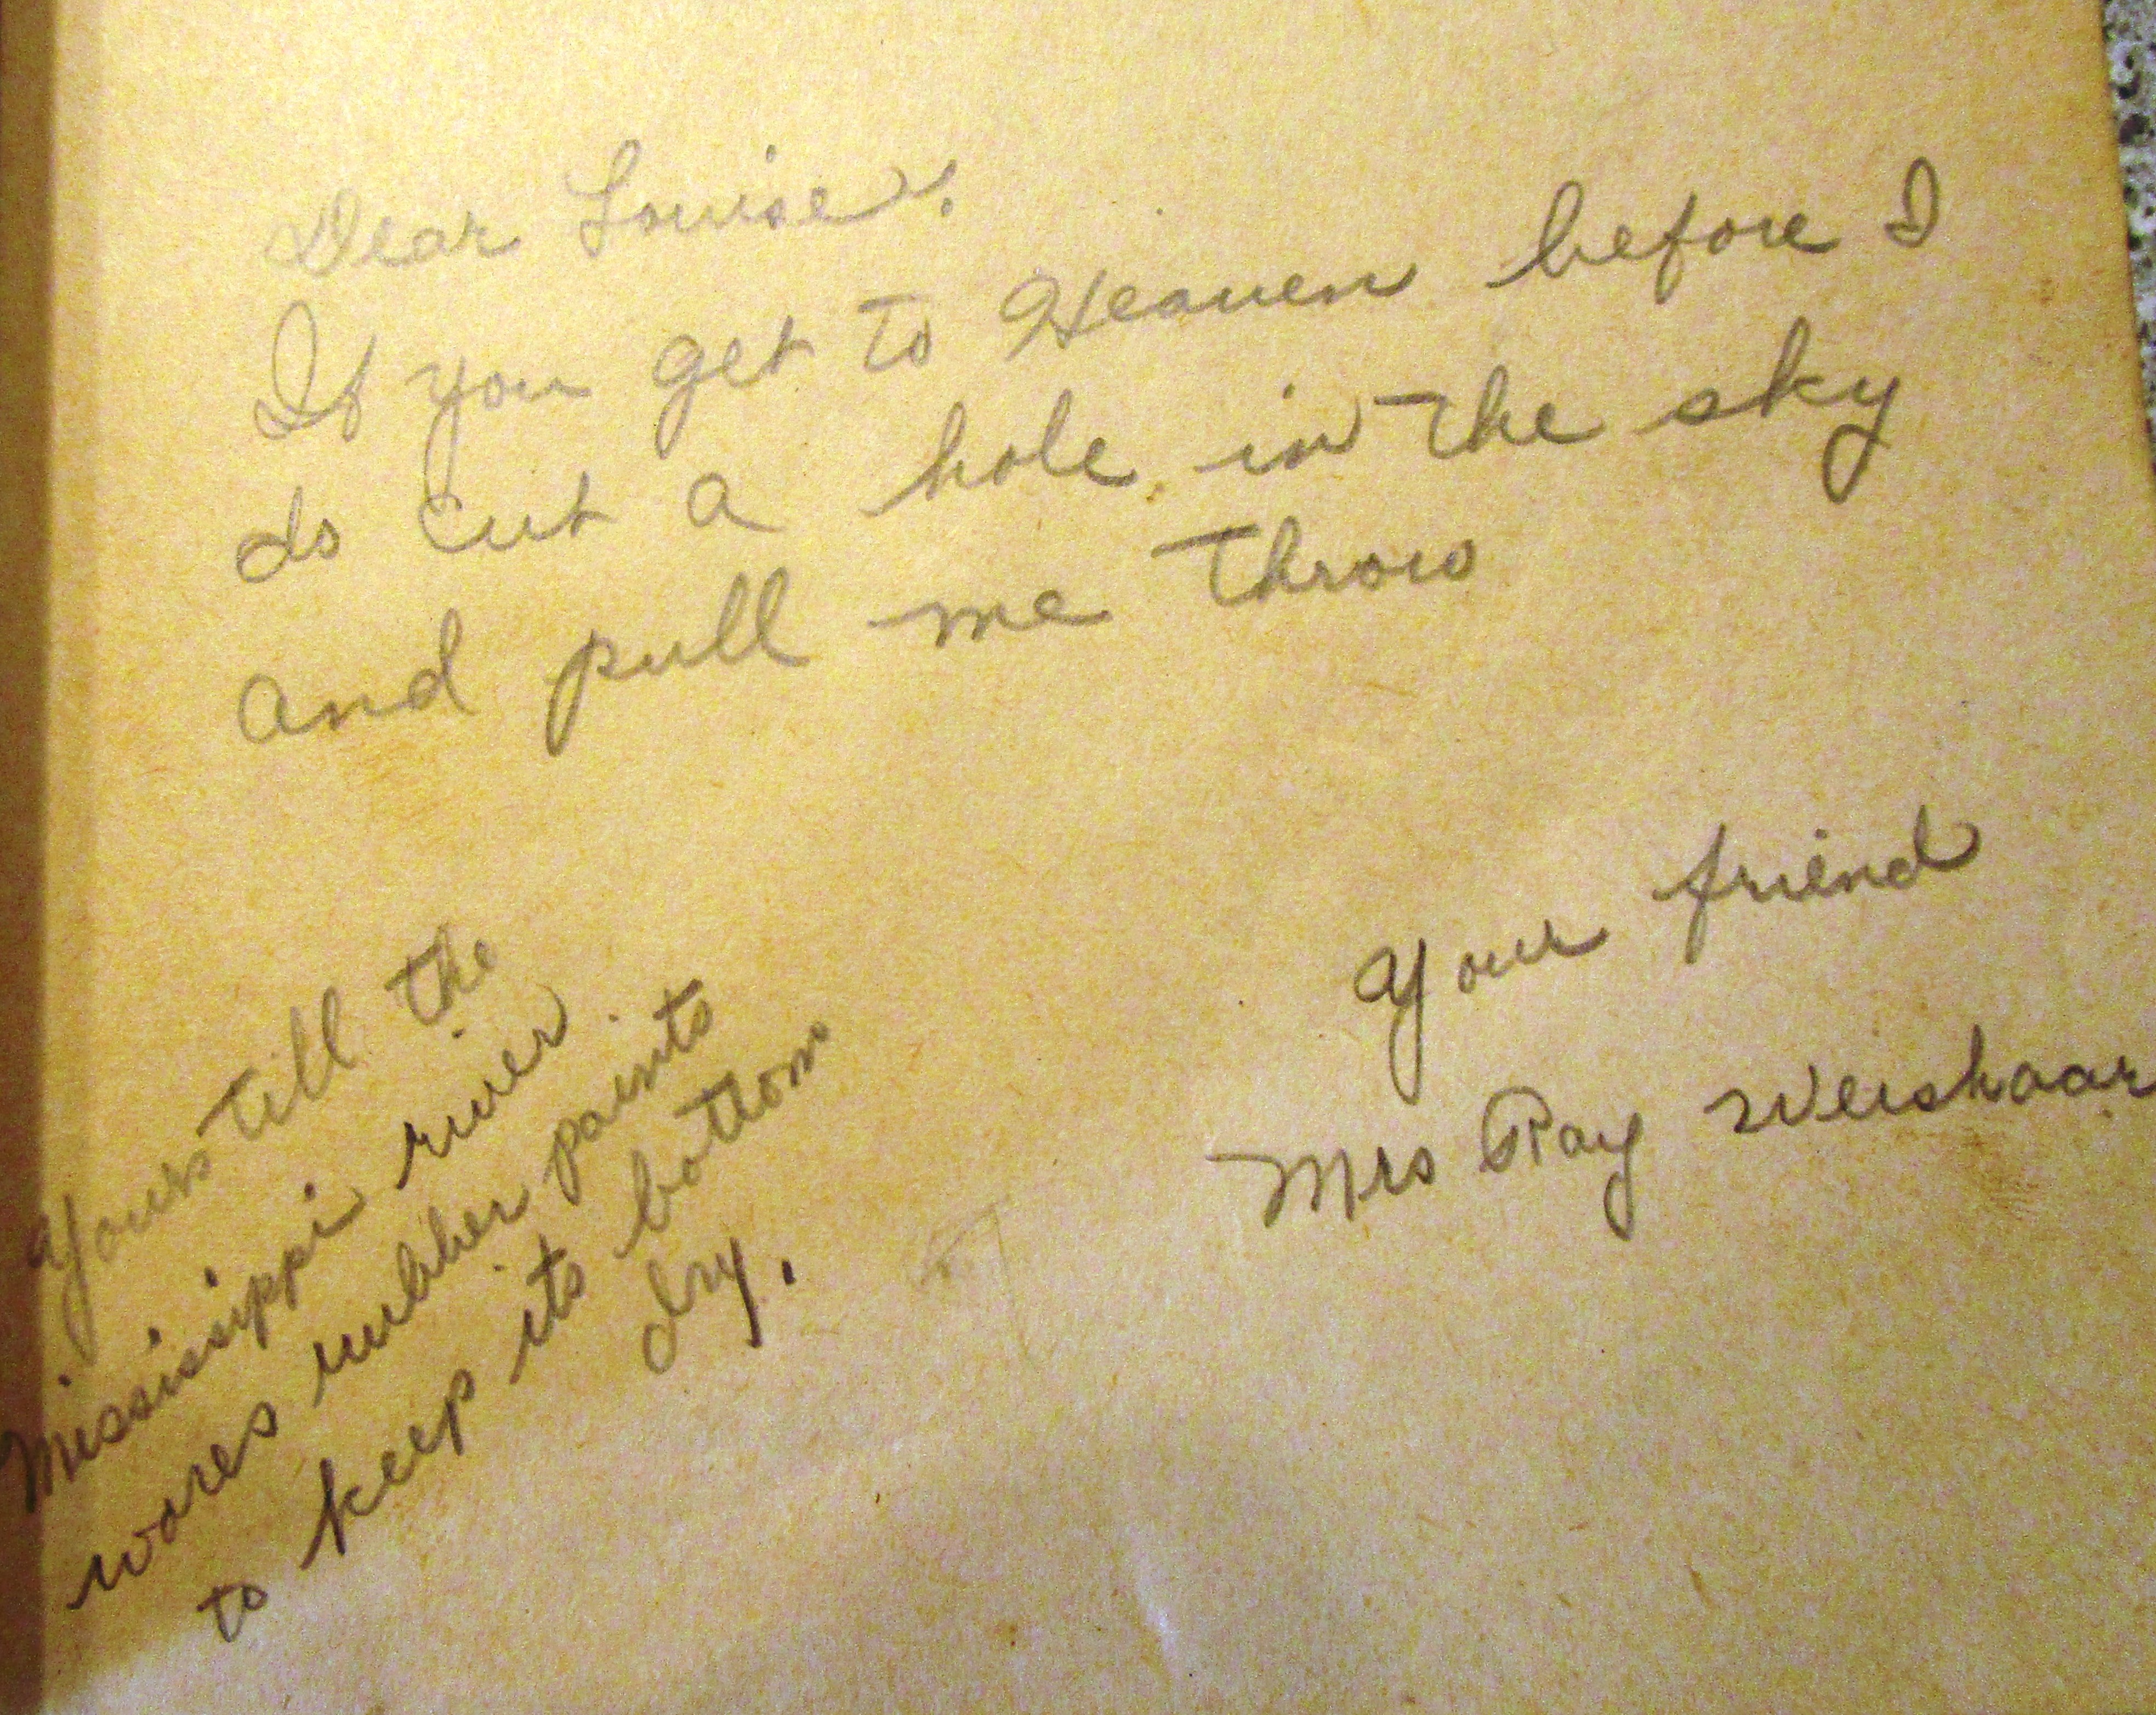 Dear Louise.
If you get to Heaven before I
do cut a hole in the sky
and pull me throw
Your friend
Mrs Ray Weishaar
Yours till the
Mississippi river
wares rubber paints
to keep its bottom
dry.